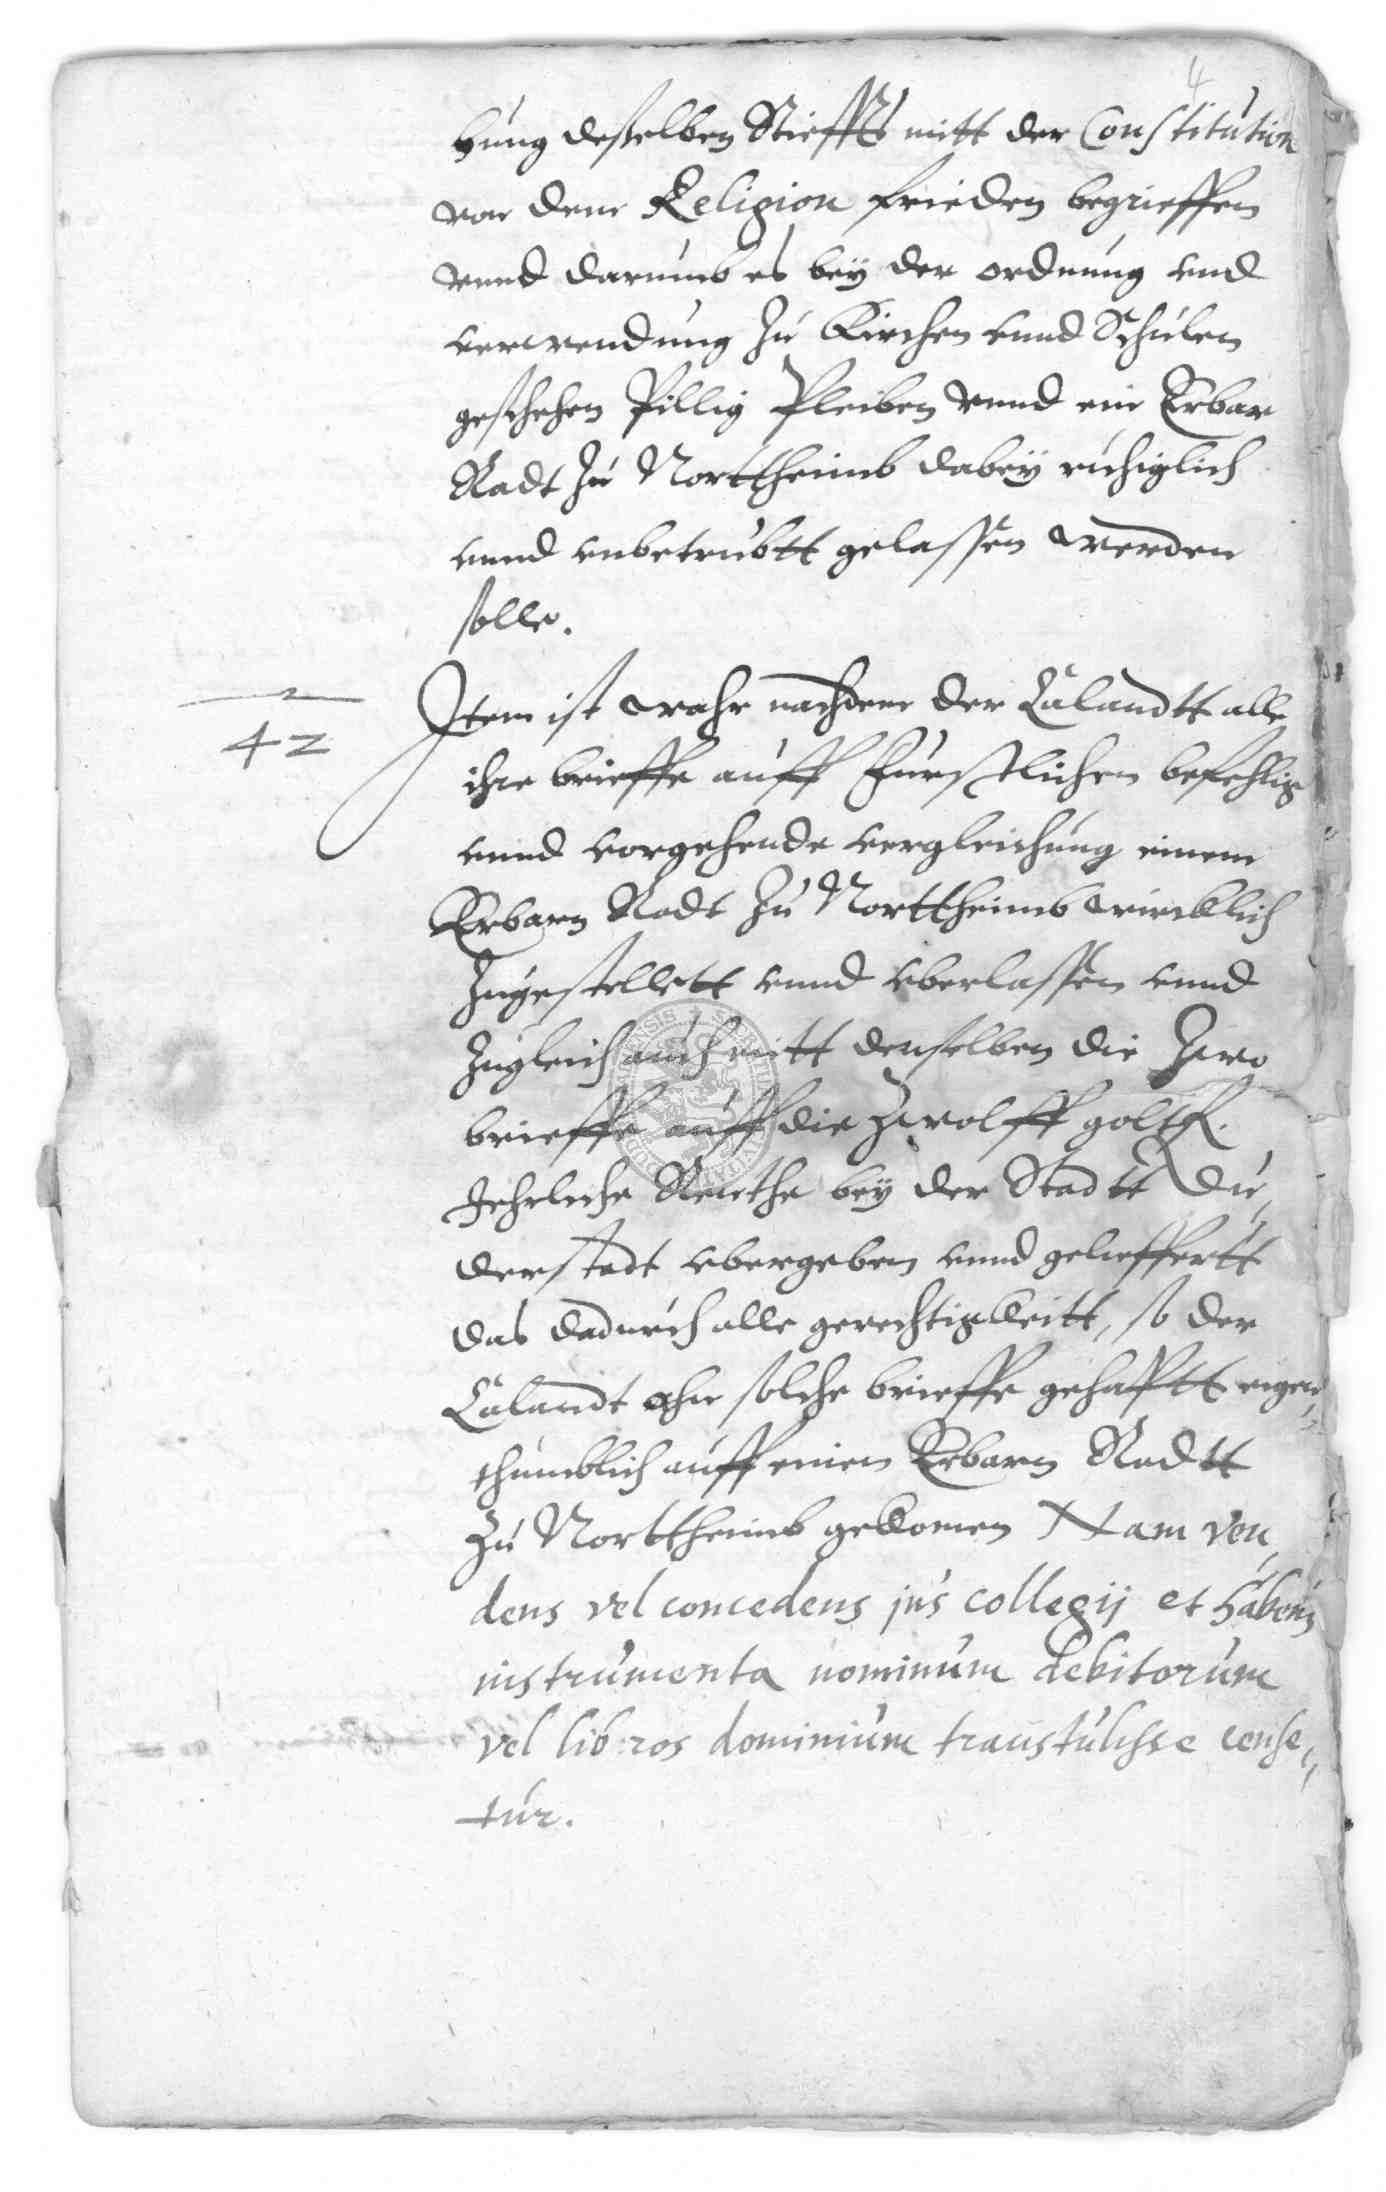 4
hung desselben Stieffts mitt der Constitution
von dem Religion frieden begrieffen
vnnd darumb es bey der ordnung vnd
verwendung zu Kirchen vnnd Schulen
geschehen pillig pleiben vnnd ein Erbar
Radt zu Norttheimb dabey ruhiglich
vnnd vnbetrubtt gelassen werden
solle.
42
Item ist wahr nachdem der Calandtt alle
ihre brieffe auff Furstlichen befehlig
vnnd vorgehende vergleichung einem
Erbarn Radt zu Norttheimb wircklich
zugestellett vnnd vberlassen vnnd
zugleich auch mitt denselben die zwo
brieffe auff die zwolff goltfl.
Jehrliche Renthe bey der Stadtt Du„
derstadt vbergeben vnnd gelieffertt
das dadurch alle gerechtigkeitt, so der
Calandt ahn solche brieffe gehafftt eigen„
thumblich auff einen Erbarn Radtt
zu Norttheimb gekomen Nam ven„
dens vel concedens jus collegij et habens
instrumenta nominum debitorum
vel libros dominium transtulisse cense„
tur.